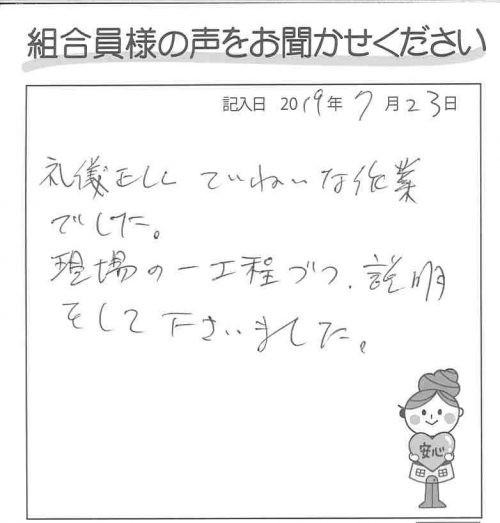 組合員様の声をお聞かせください
記入日 2019年 7月23日
礼儀正しく ていねいな作業
でした。
現場の一工程づつ、説明
をして下さいました。
安心